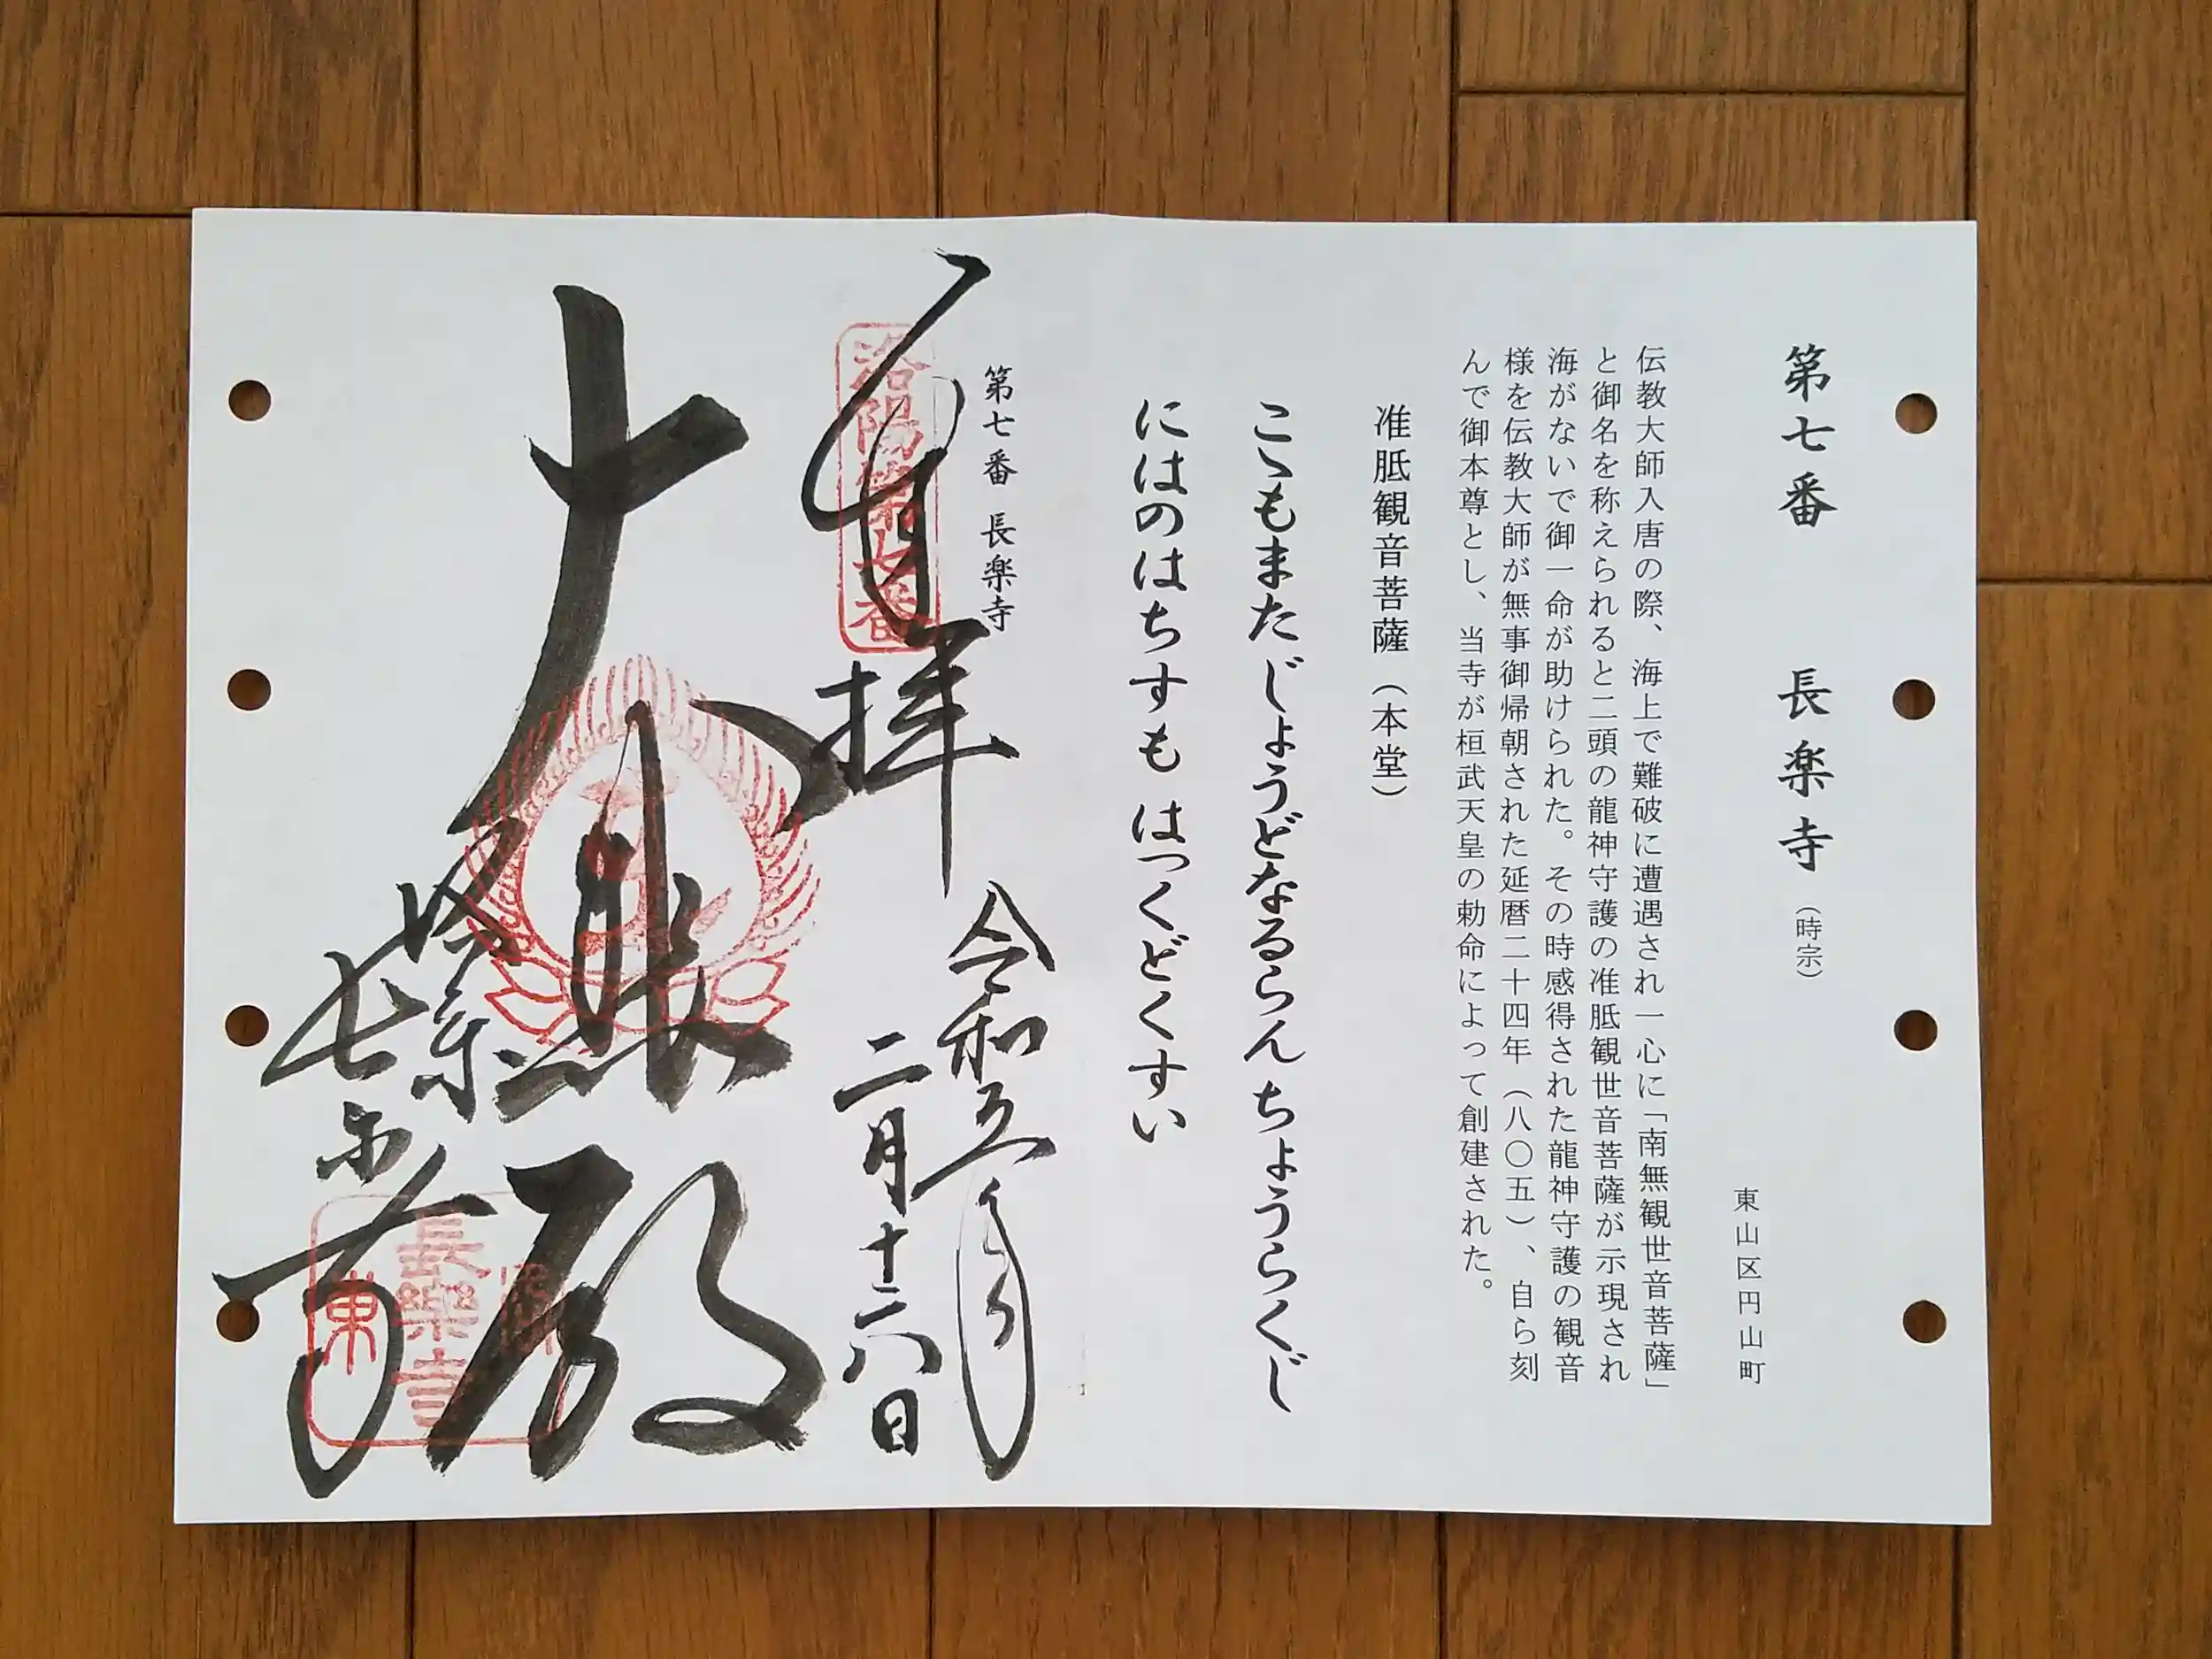 第七番 長楽寺(時宗)
東山区円山町
伝教大師入唐の際、海上で難破に遭遇され一心に「南無観世音菩薩」
と御名を称えられると二頭の龍神守護の准胝観世音菩薩が示現され
海がないで御一命が助けられた。その時感得された龍神守護の観音
様を伝教大師が無事御帰朝された延暦二十四年(八〇五)、自ら刻
んで御本尊とし、当寺が桓武天皇の勅命によって創建された。
准胝観音菩薩(本堂)
こゝもまたじょうどなるらん ちょうらくじ
にはのはちすも はっくどくすい
第七番 長楽寺
奉拝
令和五年
二月十六日
洛陽第七番
長樂寺